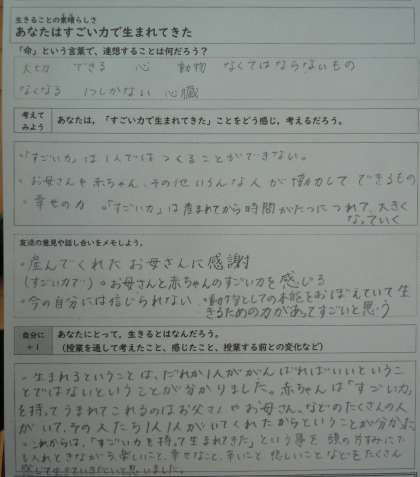 生きることの素晴らしさ
あなたはすごい力で生まれてきた
「命」という言葉で、連想することは何だろう?
大切 できる 心 動物 なくてはならないもの
なくなる 1つしかない 心臓
考えてみよう あなたは、「すごい力で生まれてきた」ことをどう感じ、考えるだろう。
・「すごい力」は1人ではつくることができない。
・お母さんや赤ちゃん、その他いろんな人が協力してできるもの
・幸せの力 。「すごい力」は産まれてから時間がたつにつれて、大きく
なっていく
友達の意見や話し合いをメモしよう。
・産んでくれたお母さんに感謝
(すごい力で) 。お母さんと赤ちゃんのすごい力を感じる
・今の自分には信じられない ・動物としての本能をおぼえていて生
きるための力があってすごいと思う
自分に+1 あなたにとって、生きるとはなんだろう。
(授業を通して考えたこと、感じたこと、授業する前との変化など)
・生まれるということは、だれか1人ががんばればいいというこ
とではないということが分かりました。赤ちゃんは「すごい力」
を持ってうまれてこれるのはお父さんやお母さん、などのたくさんの人
がいて、その人たち1人1人がいてくれたからということが分かった
。これからは、「すごい力を持って生まれてきた」という事を頭の片すみにで
も入れときながら、楽しいこと、幸せなこと、辛いこと 悲しいことなどをたくさん
感じて生きていきたいと思いました。